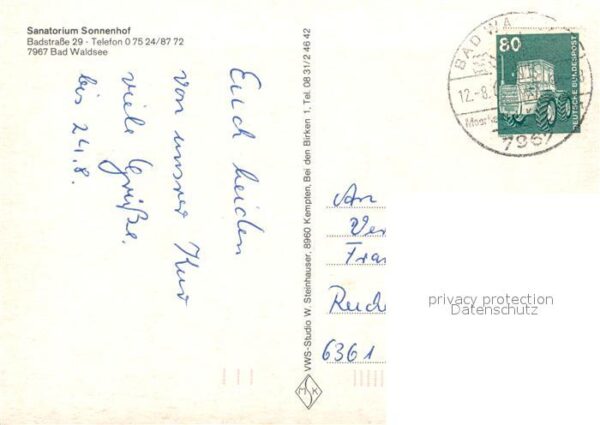 Sanatorium Sonnenhof
Badstraße 29 · Telefon 0 75 24/87 72
7967 Bad Waldsee
Euch beiden
von unsrer Kur
viele Grüße.
bis 24.8.
VWS-Studio W. Steinhauser, 8960 Kempten, Bei den Birken 1, Tel. 08 31/2 46 42
M S K
BAD WA
12.-8.
7967
80
DEUTSCHE BUNDESPOST
An
Ver
6361
privacy protection
Datenschutz